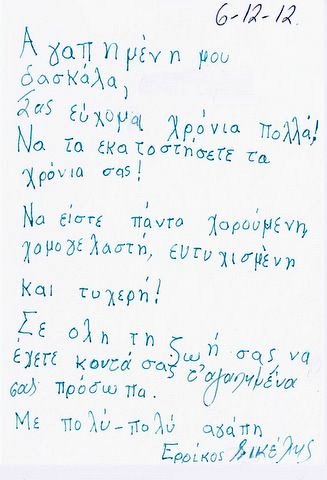 6-12-12.
Αγαπημένη μου
δασκάλα,
Σας εύχομαι χρόνια πολλά!
Να τα εκατοστήσετε τα
χρόνια σας!
Να είστε πάντα χαρούμενη,
χαμογελαστή, ευτυχισμένη
και τυχερή!
Σε όλη τη ζωή σας να
έχετε κοντά σας τ'αγαπημένα
σας πρόσωπα.
Με πολύ-πολύ αγάπη
Ερρίκος Σικέλης